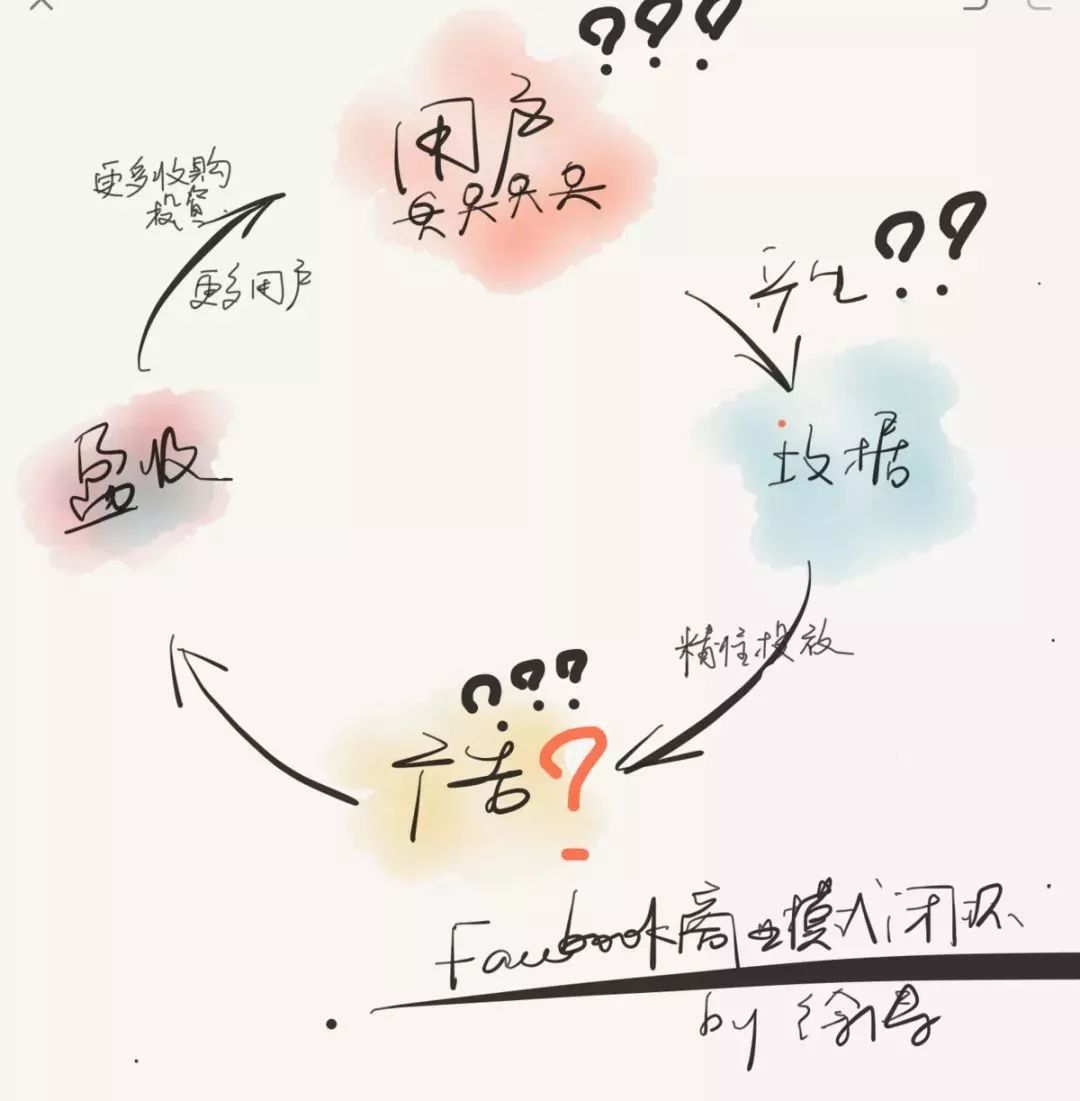 ???
用户
更多收购
投资
更多用户
产生??
数据
盈收
精准投放
???
广告?
Facebook商业模式闭环
by